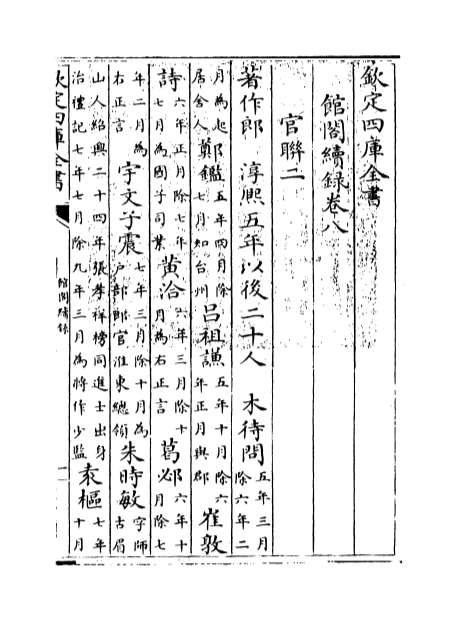 欽定四庫全書
館閣續錄卷八
官聯二
著作郎 淳熙五年以後二十人 木待問 五年三月除六年二
月為起居舍人 鄭鑑 五年四月除七月知台州 呂祖謙 五年十月除六年正月與郡 崔敦
詩 六年正月除七年七月為國子司業 黃洽 六年三月除十月為右正言 葛邲 六年十月除七
年二月為右正言 宇文子震 七年三月除十月為戶部郎官淮東總領 朱時敏 字師古眉
山人紹興二十四年張孝祥榜同進士出身治禮記七年七月除九年三月為將作少監 袁樞 七年十月
欽定四庫全書
館閣續錄